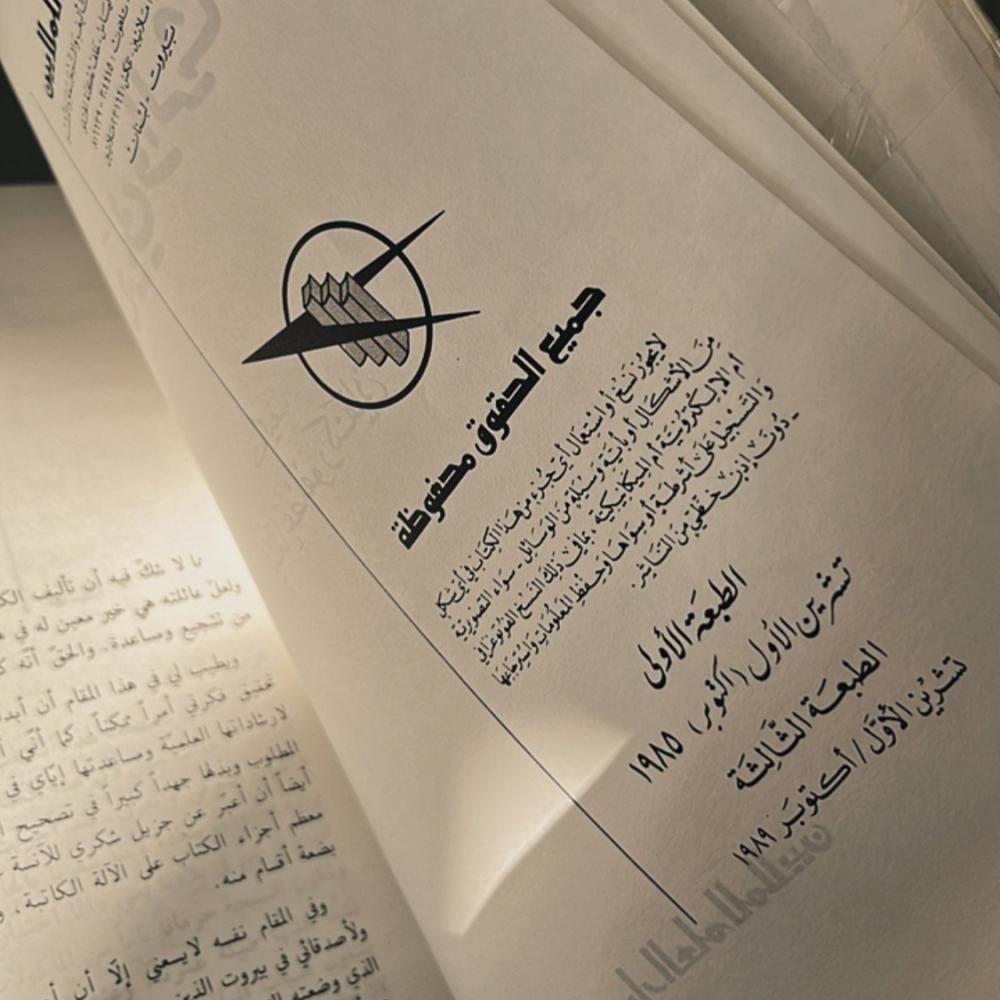 بيروت - لبنان
جميع الحقوق محفوظة
لا يجوز نسخ أو استعمال أي جزء من هذا الكتاب في أي شكل
من الأشكال أو بأية وسيلة من الوسائل - سواء التصويرية
أم الإلكترونية أم الميكانيكية بما في ذلك النسخ الفوتوغرافي
والتسجيل على أشرطة أو سواها وحفظ المعلومات واسترجاعها
- دون إذن خطي من الناشر.
الطبعة الأولى
تشرين الأول (اكتوبر) ١٩٨٥
الطبعة الثالثة
تشرين الأول / أكتوبر ١٩٨٩
مما لا شك فيه أن تأليف
ولعل عائلته هي خير معين له في
من تشجيع ومساعدة. والحق أنه
ويطيب لي في هذا المقام أن
تحقيق فكرتي أمراً ممكناً. كما أني
لارشاداتها العلمية ومساعدتها إياي في
المطلوب وبذلها جهداً كبيراً في تصحيح
أيضاً أن أعبر عن جزيل شكري للآنسة
معظم أجزاء الكتاب على الآلة الكاتبة،
بضعة أقسام منه.
وفي المقام نفسه لا يسعني إلا أن
ولأصدقائي في بيروت
الذي وضعته